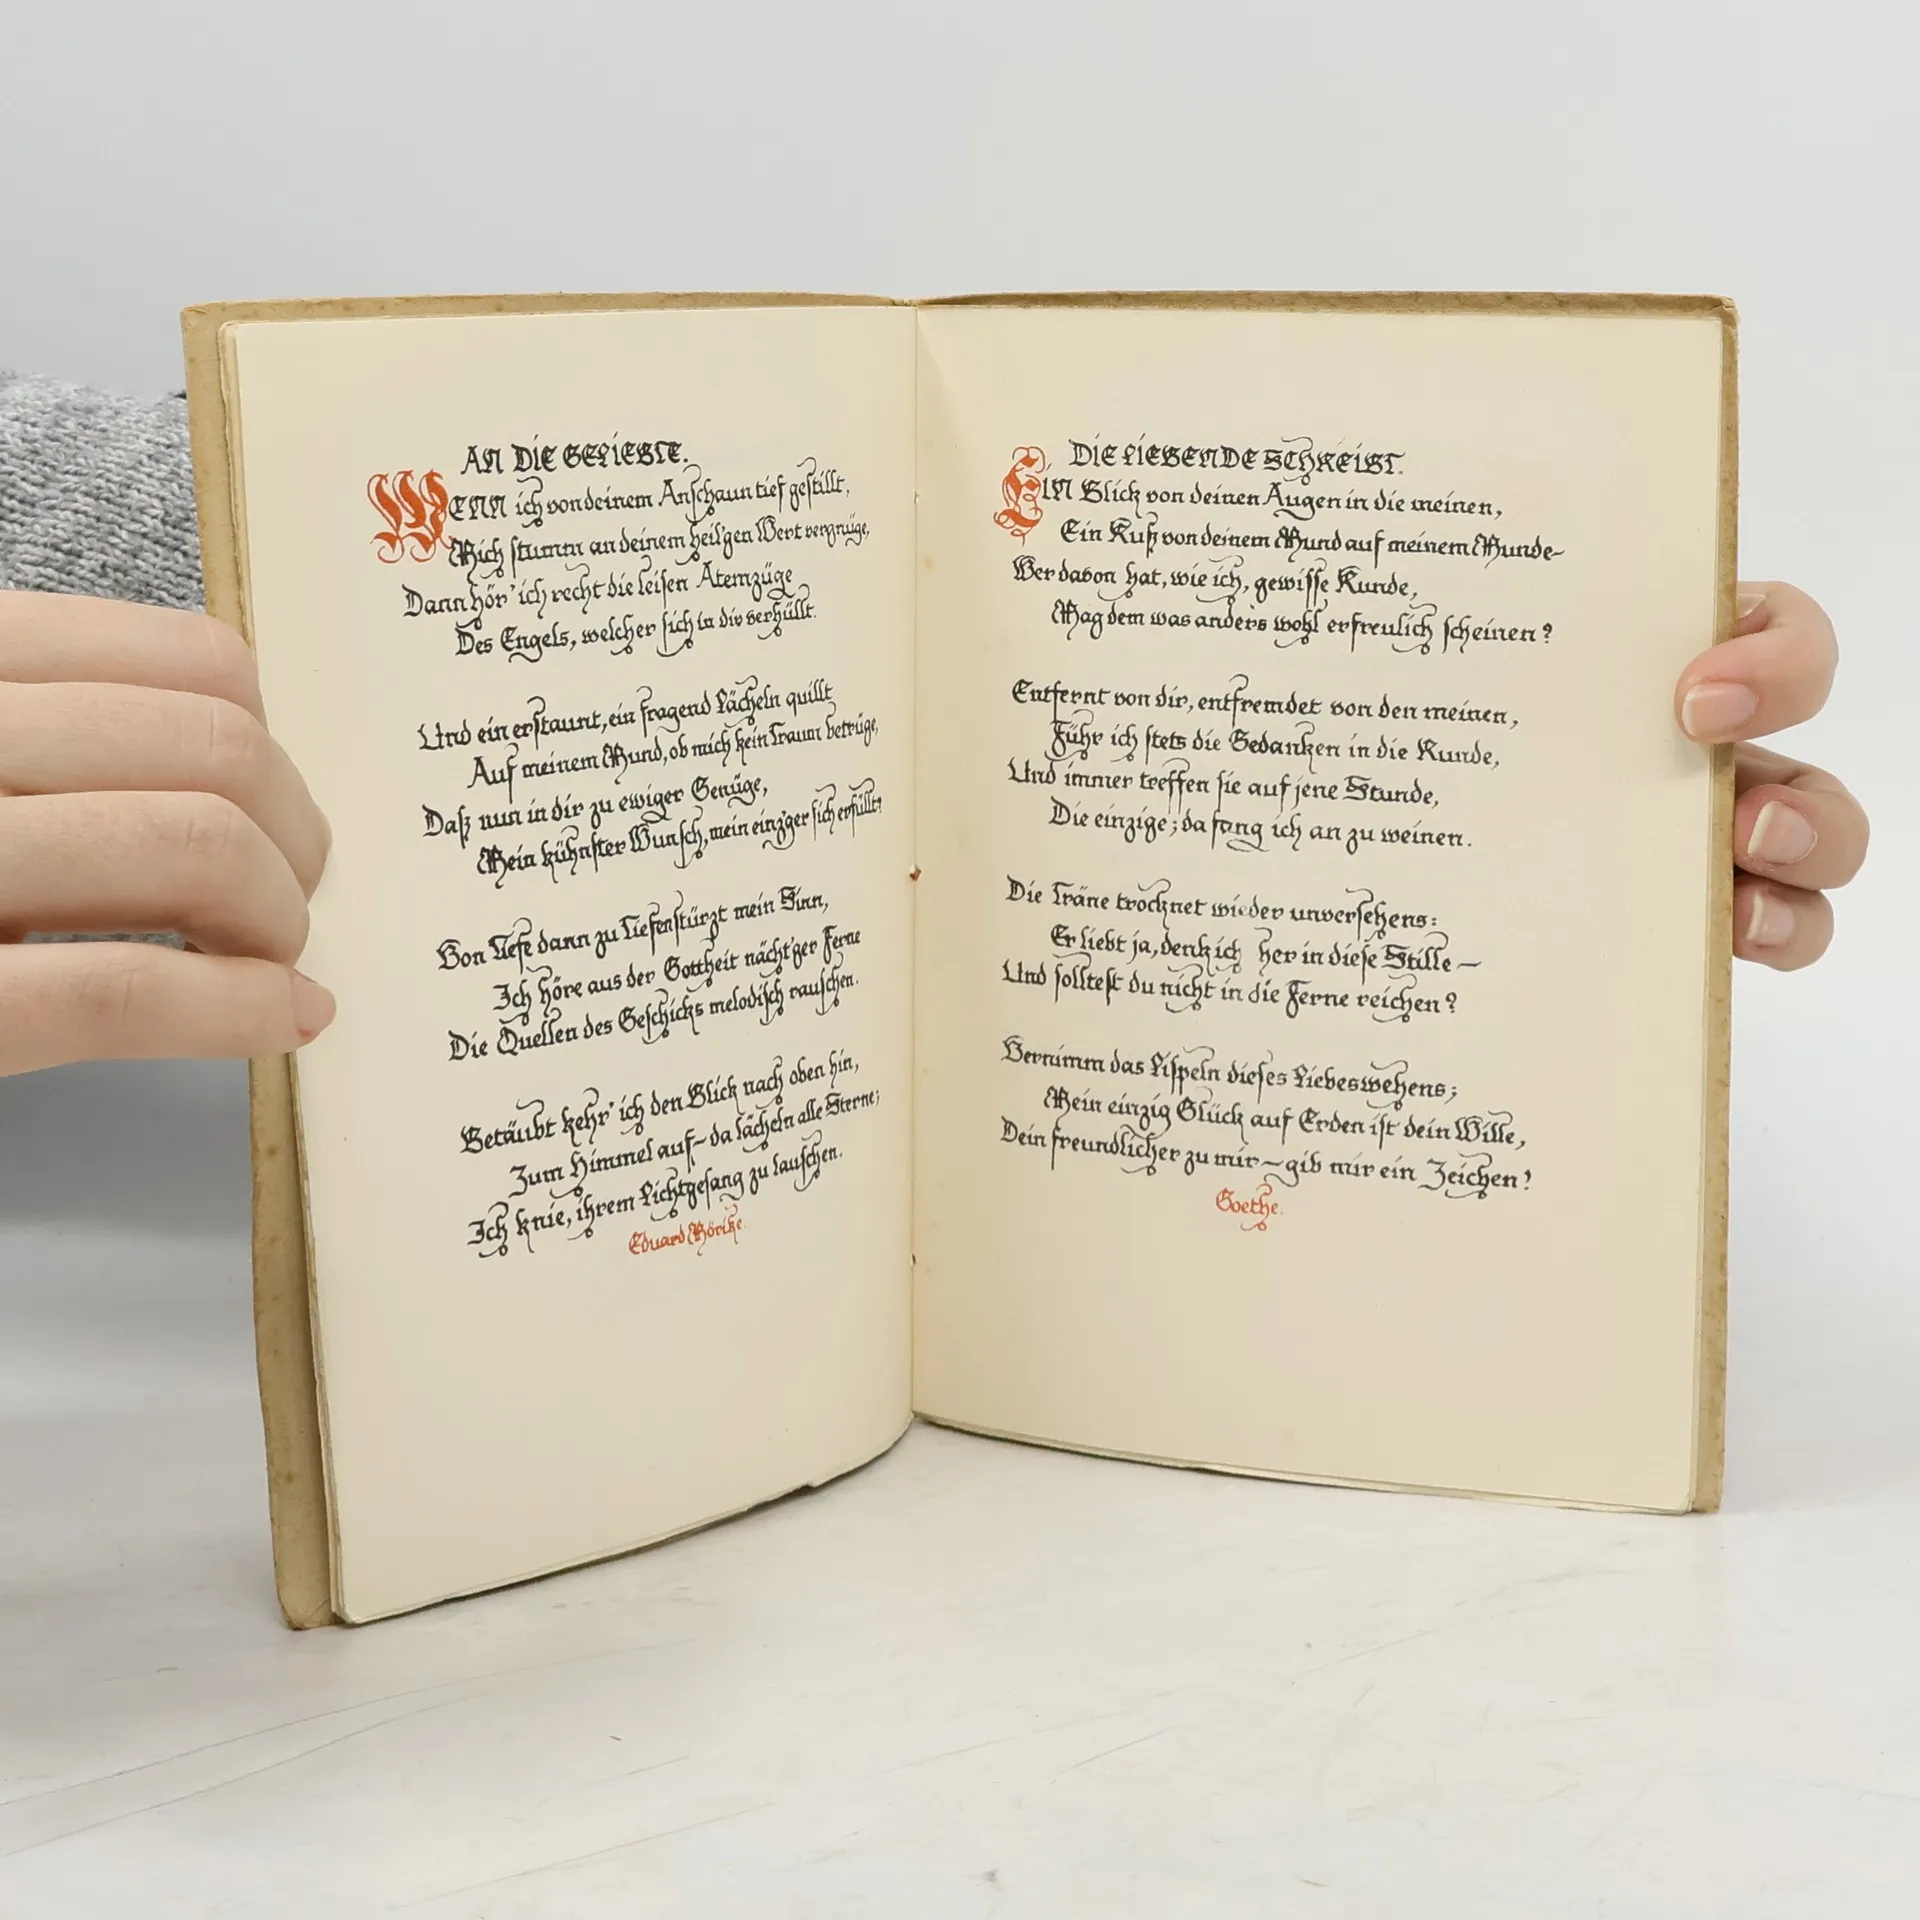 AN DIE GELIEBTE.
WENN ich von deinem Anschaun tief gestillt,
Mich stumm an deinem heil'gen Wert vergnüge,
Dann hör' ich recht die leisen Atemzüge
Des Engels, welcher sich in dir verhüllt.
Und ein erstaunt, ein fragend Lächeln quillt
Auf meinem Mund, ob mich kein Traum betrüge,
Daß nun in dir zu ewiger Genüge,
Mein kühnster Wunsch, mein einz'ger sich erfüllt?
Von Tiefe dann zu Tiefen stürzt mein Sinn,
Ich höre aus der Gottheit nächt'ger Ferne
Die Quellen des Geschicks melodisch rauschen.
Betäubt kehr' ich den Blick nach oben hin,
Zum Himmel auf – da lächeln alle Sterne;
Ich knie, ihrem Lichtgesang zu lauschen.
Eduard Mörike.
DIE LIEBENDE SCHREIBT.
EIN Blick von deinen Augen in die meinen,
Ein Kuß von deinem Mund auf meinem Munde –
Wer davon hat, wie ich, gewisse Kunde,
Mag dem was anders wohl erfreulich scheinen?
Entfernt von dir, entfremdet von den meinen,
Führ ich stets die Gedanken in die Runde,
Und immer treffen sie auf jene Stunde,
Die einzige; da fang ich an zu weinen.
Die Träne trocknet wieder unversehens:
Er liebt ja, denk ich her in diese Stille –
Und solltest du nicht in die Ferne reichen?
Vernimm das Lispeln dieses Liebeswehens;
Mein einzig Glück auf Erden ist dein Wille,
Dein freundlicher zu mir – gib mir ein Zeichen!
Goethe.